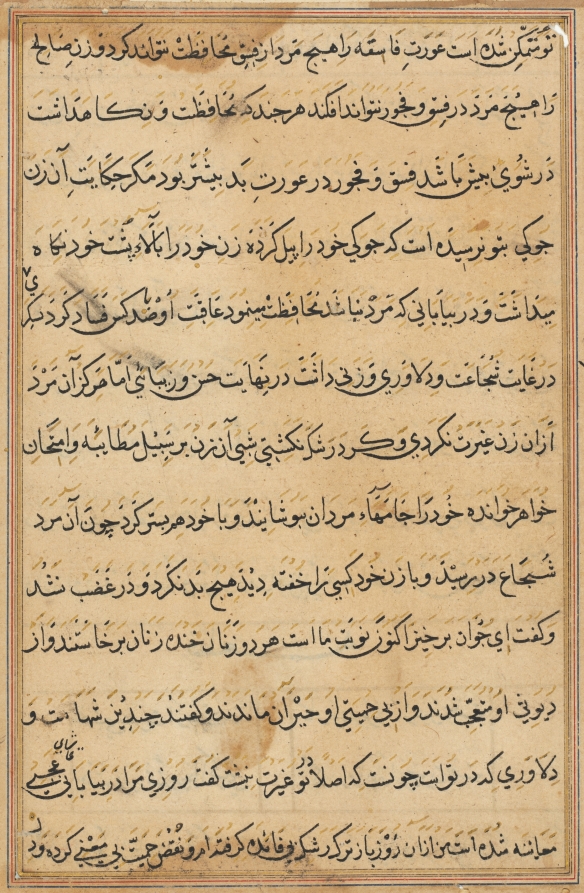 تو متمکّن شده است عورتِ فاسقه را هیچ مرد از فسق محافظت نتواند کرد و زن صالح
را هیچ مرد در فسق و فجور نتواند افکند هرچند که محافظت و نکاهداشت
در شوی بیش باشد فسق و فجور در عورتِ بد بیشتر بود مکر حکایتِ آن زن
جوکی بتو نرسیده است که جوکی خود را پیل کرده زن خود را بالاء پشت خود نکاه
میداشت و در بیابانی که مردُ نباشد محافظت مینمود عاقبت او با صد کس فساد کرد
در غایت شجاعت و دلاوری و زنی داشت در نهایت حسن و زیبائی امّا هرکز آن مرد
ازان زن غیرت نکردی و کرد رشک نکشتی شبی آن زن بر سبیل مطایبه و امتحان
خواهر خوانده خود را جامهاء مردان بپوشانید و با خود هم بستر کرد چون آن مرد
شجاع در رسید و با زن خود کسی را خفته دید هیچ بد نکرد و در غضب نشد
و کفت ای جوان برخیز اکنون نوبت ما است هر دو زنان خنده زنان برخاستند و از
دیوثی او متعجّب شدند و از بی حمیتی او حیران ماندند و کفتند چندین شهامت و
دلاوری که در تو است چونست که اصلا در تو غیرت نیست کفت روزی مرا در بیابانی عجبی
معاینه شده است من ازان روز باز ترک رشک بی فائده کرفته ام و نقض حمیّت بی معنی کرده و